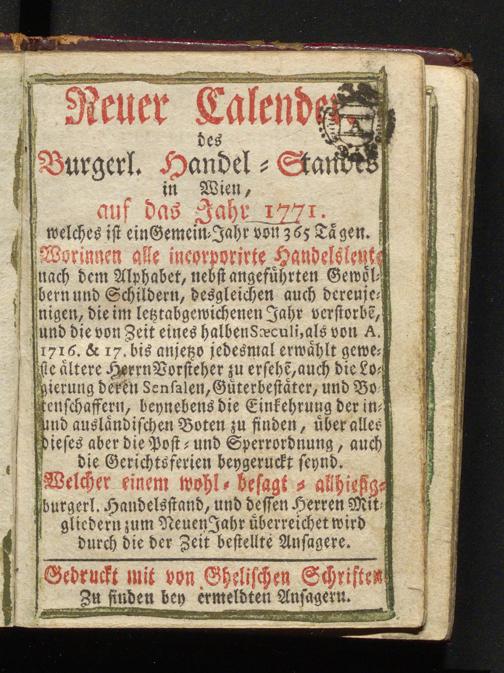 Neuer Calender
des
Burgerl. Handel-Standes
in Wien,
auf das Jahr 1771.
welches ist ein Gemein-Jahr von 365 Tägen.
Worinnen alle incorporirte Handelsleute
nach dem Alphabet, nebst angeführten Gewöl-
bern und Schildern, desgleichen auch dereuje-
nigen, die im letztabgewichenen Jahr verstorbē,
und die von Zeit eines halben Sæculi, als von A.
1716. & 17. bis anjetzo jedesmal erwählt gewe-
ste ältere Herrn Vorsteher zu ersehē, auch die Lo-
gierung deren Sensalen, Güterbestäter, und Bo-
tenschaffern, beynebens die Einkehrung der in-
und ausländischen Boten zu finden, über alles
dieses aber die Post- und Sperrordnung, auch
die Gerichtsferien beygeruckt seynd.
Welcher einem wohl-besagt-allhiesig-
burgerl. Handelsstand, und dessen Herren Mit-
gliedern zum Neuen Jahr überreichet wird
durch die der Zeit bestellte Ansagere.
Gedruckt mit von Ghelischen Schriften
Zu finden bey ermeldten Ansagern.